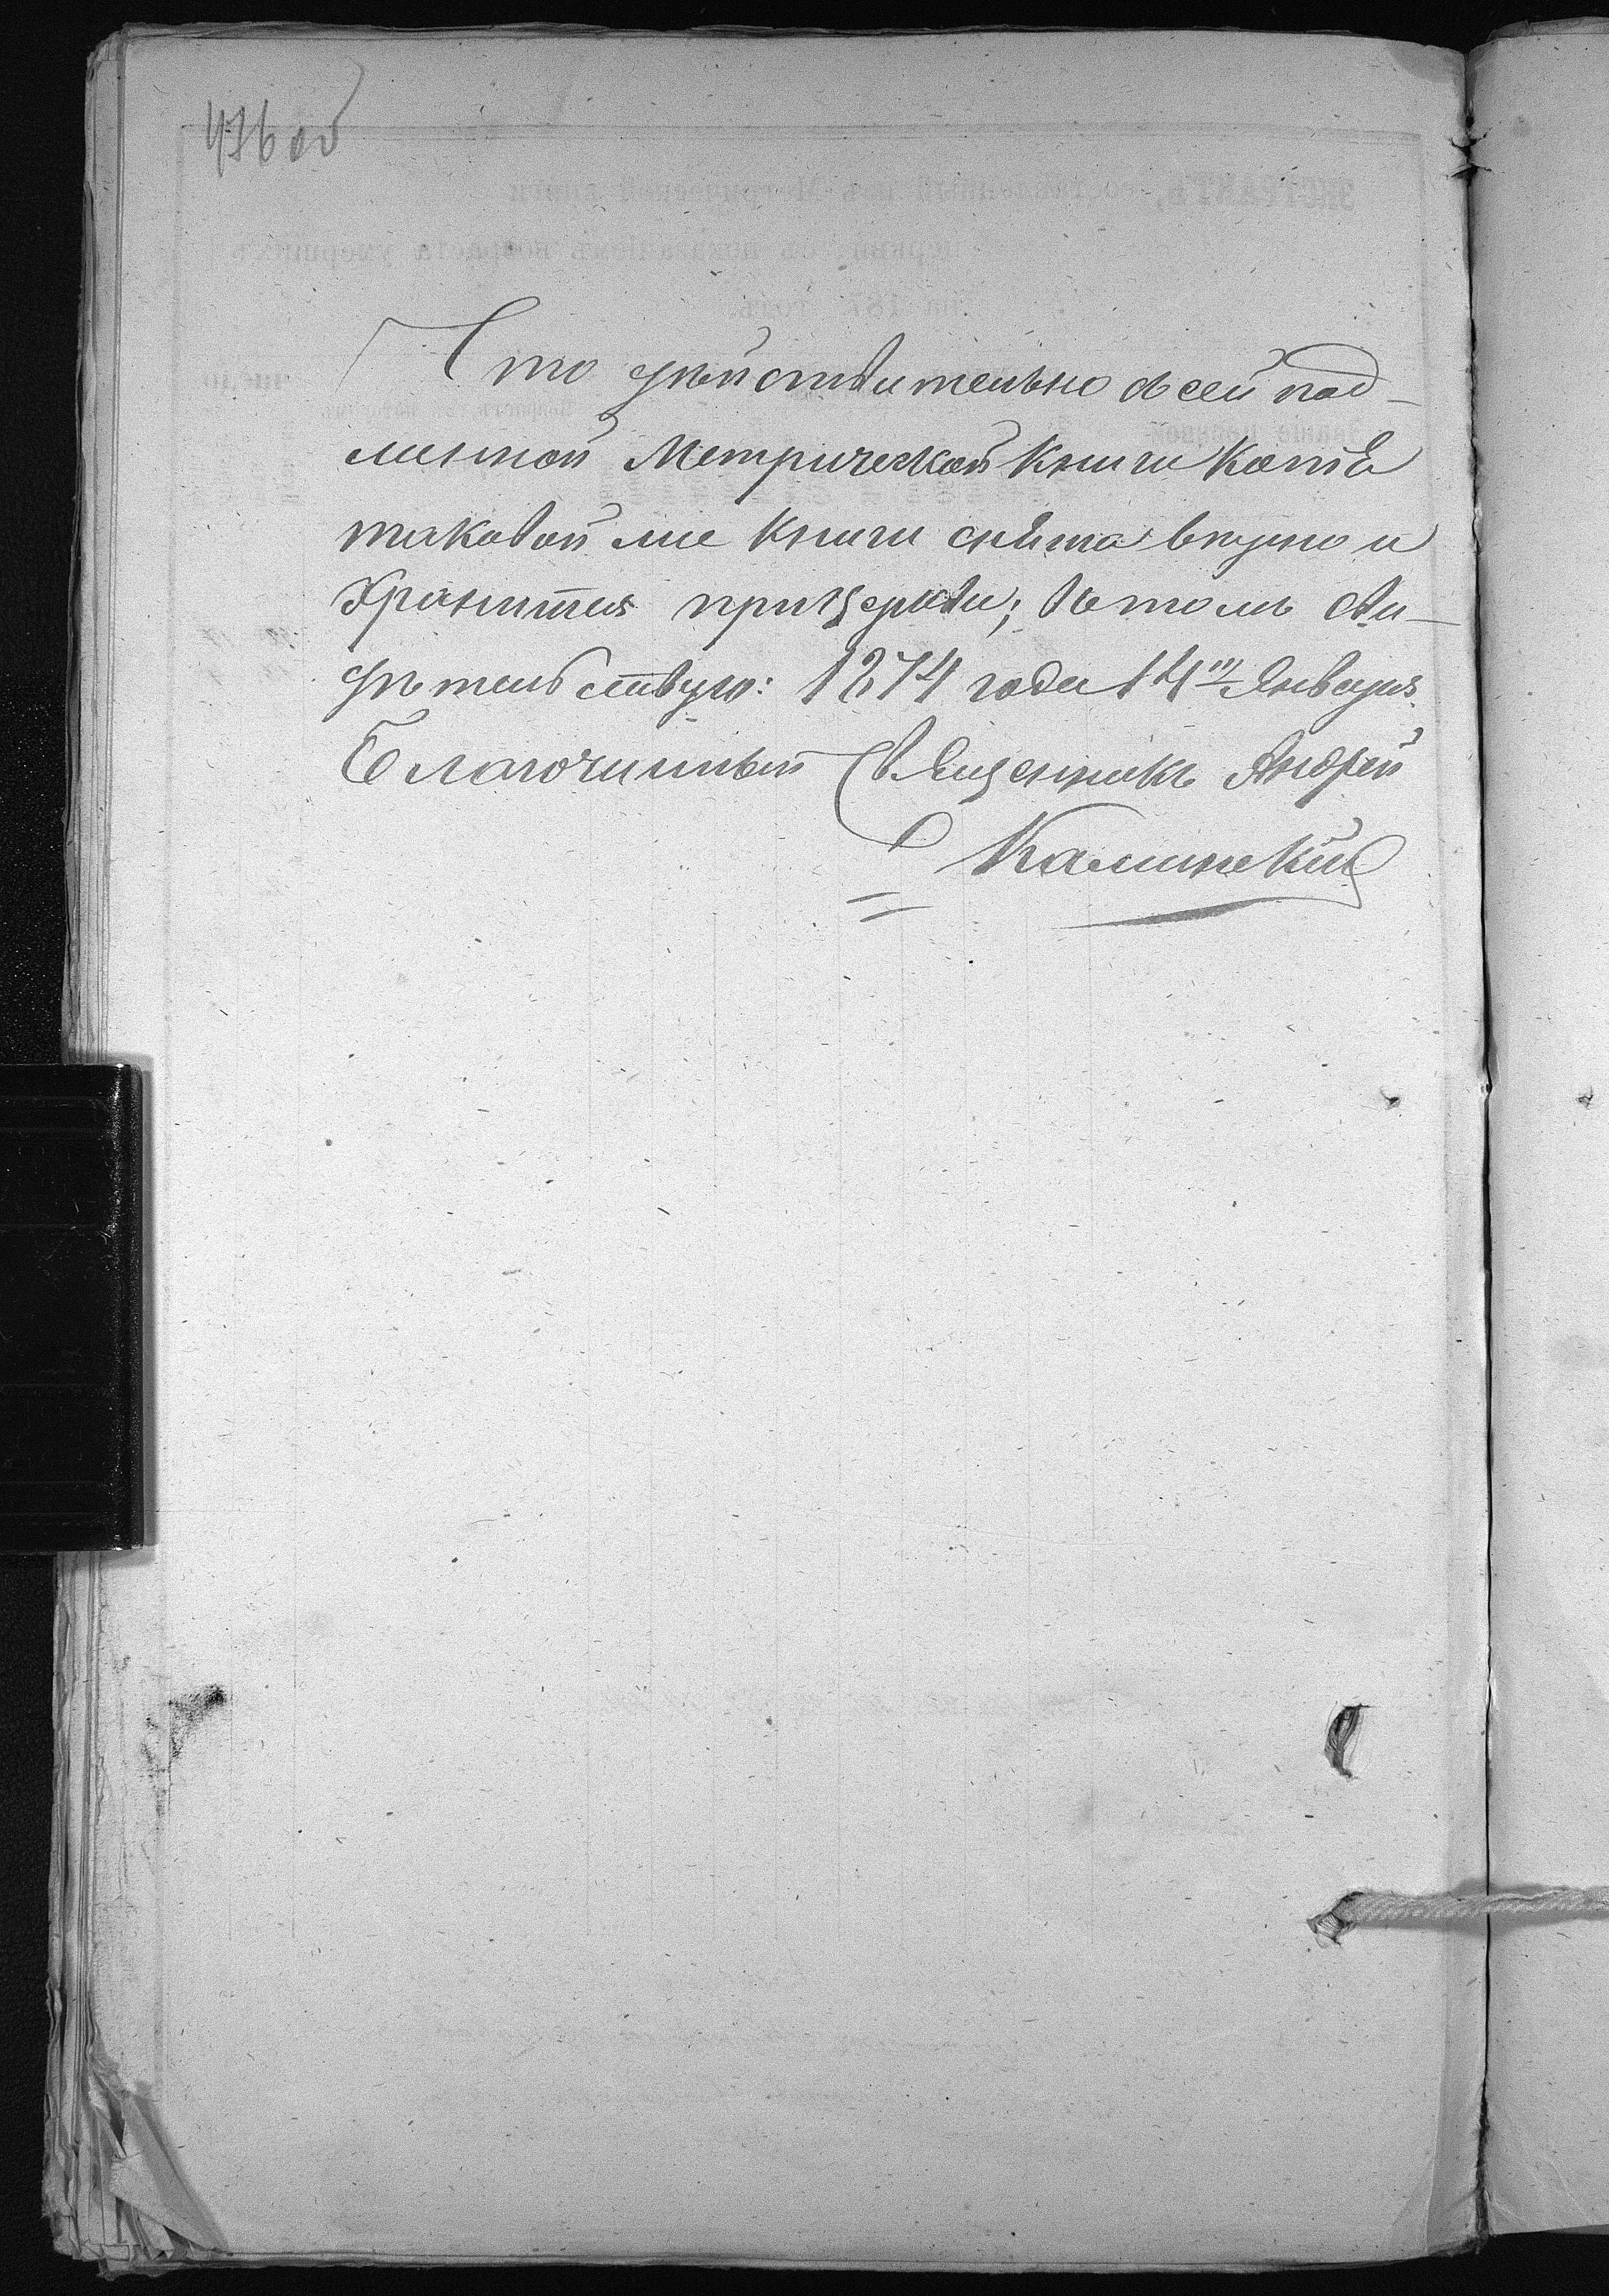 436 об
Что дѣйствительно съ сей под-
линной Метрической Книги Копія
таковой же Книги снята вѣрно и
Хранится при Церкви; въ томъ сви-
дѣтельствую: 1874 года 14го Января
Благочинный Священникъ Андрей
Калинскій